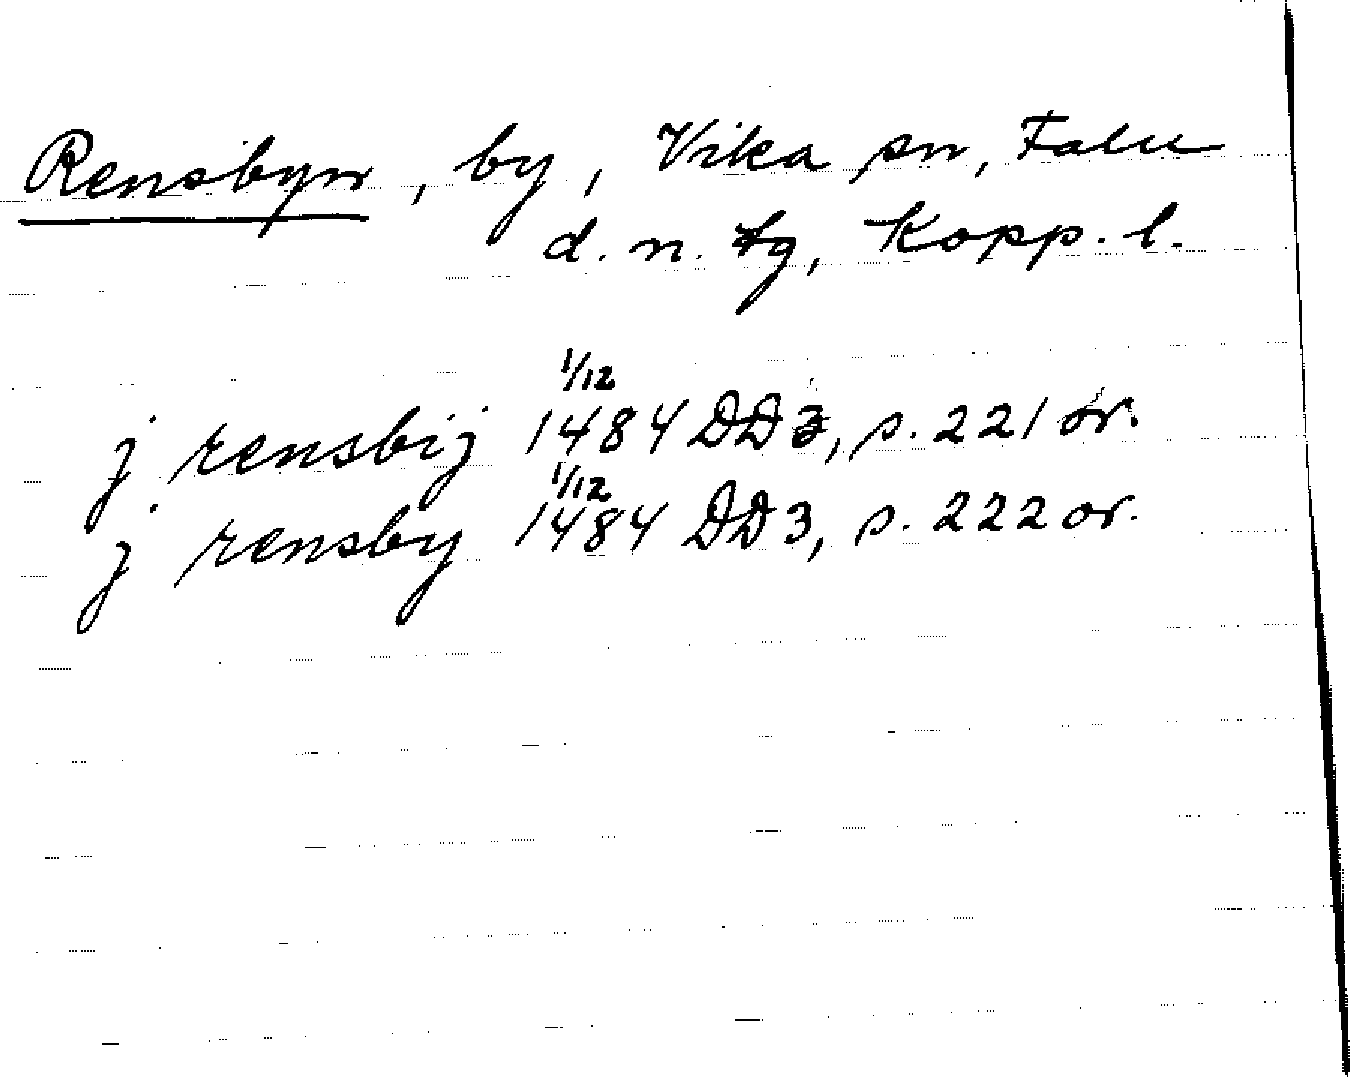 Rensbyn, by, Vika sn, Falu
d. n. tg, Kopp. l.
1/12
j rensbij 1484 DD3, s. 221 or.
1/12
j rensby 1484 DD3, s. 222 or.